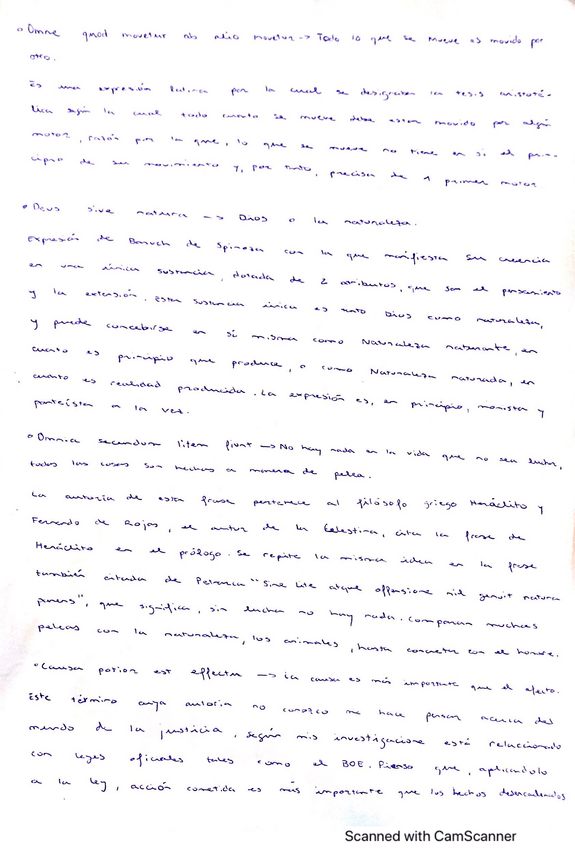 Omne quod movetur ab alio movetur -> Todo lo que se mueve es movido por
otro.
Es una expresión latina por la cual se designaban las tesis aristoté-
lica según la cual todo cuanto se mueve debe estar movido por algún
motor, razón por la que, lo que se mueve no tiene en si el prin-
cipio de su movimiento y, por tanto, precisa de 1 primer motor
Deus sive natura -> Dios o la naturaleza.
Expresión de Baruch de Spinoza con la que manifiesta su creencia
en una única sustancia, dotada de 2 atributos, que son el pensamiento
y la extensión. Esta sustancia única es tanto Dios como naturaleza,
y puede concebirse en sí misma como Naturaleza naturante, en
cuanto es principio que produce, o como Naturaleza naturada, en
cuanto es realidad producida. La expresión es, en principio, monista y
panteísta a la vez.
Omnia secundum litem fiunt -> No hay nada en la vida que no sea lucha,
todas las cosas son hechas a manera de pelea.
La autoría de esta frase pertenece al filósofo griego Heráclito y
Fernando de Rojas, el autor de la Celestina, cita la frase de
Heráclito en el prólogo. Se repite la misma idea en la frase
también citada de Petrarca "Sine lite atque offensione nil genuit natura
parens", que significa, sin lucha no hay nada. Comparan muchas
peleas con la naturaleza, los animales, hasta concretar con el hombre.
Causa potior est effectu -> La causa es más importante que el efecto.
Este término cuya autoría no conozco me hace pensar acerca del
mundo de la justicia, según mis investigacione está relaccionado
con leyes oficiales tales como el BOE. Pienso que, aplicándolo
a la ley, acción cometida es más importante que los hechos desencadenados
Scanned with CamScanner